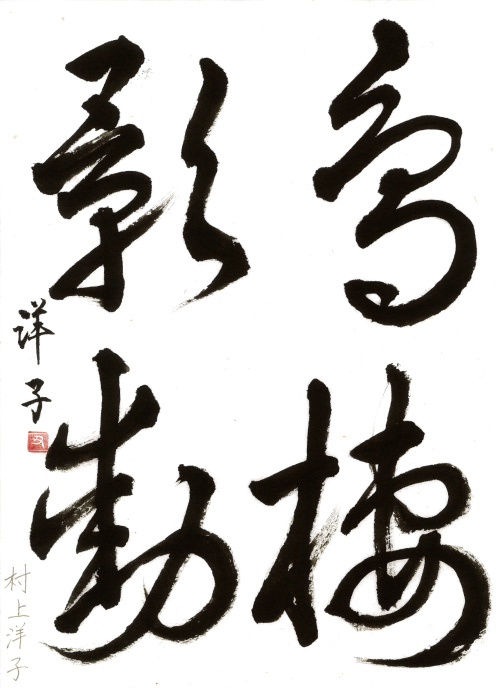 鳥棲
影動
洋子
村上洋子